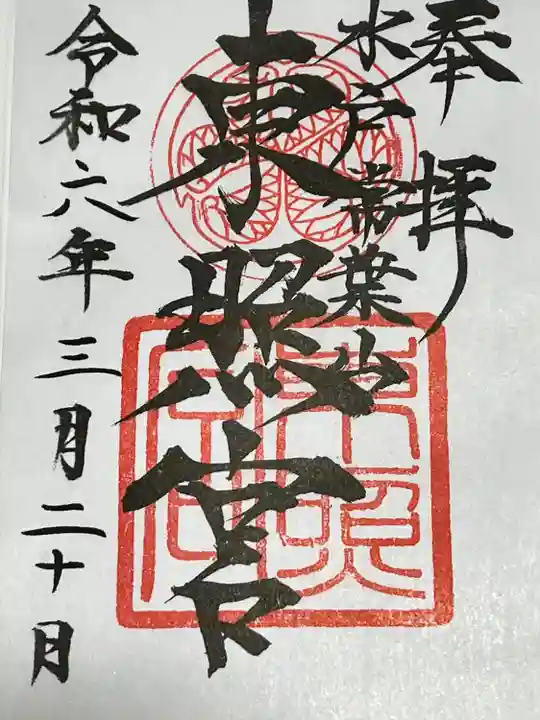 奉拝
水戸常葉山
東照宮
令和六年三月二十日
東照宮